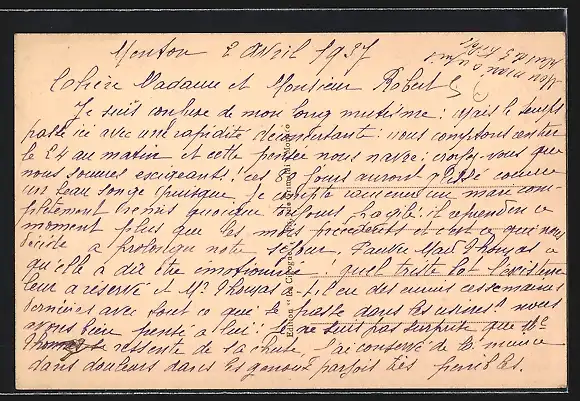 Menton 2 Avril 1937
Chère Madame et Monsieur Robert
Je suis confuse de mon long mutisme : mais le temps
passe ici avec une rapidité déconcertante : nous comptons rentrer
le 24 au matin et cette pensée nous navre : croyez-vous que
nous sommes exigeants ! ces 80 jours auront passé comme
un beau songe puisque je compte ramener un mari com-
plètement remis quoique toujours fragile : il reprend en ce
moment plus que les mois précédents et c'est ce qui nous
décide à prolonger notre séjour. Pauvre Mad Thomas ce
qu'elle a dû être émotionnée ! quel triste lot l'existence
leur a réservé et Mr Thomas a-t-il eu des ennuis ces semaines
dernières avec tout ce que se passe dans les usines ? nous
avons bien pensé à lui : Je ne suis pas surprise que Me
ressente de la chute, j'ai conservé de la mienne
des douleurs dans les genoux parfois très pénibles.
Edition "La Cigogne", Monaco